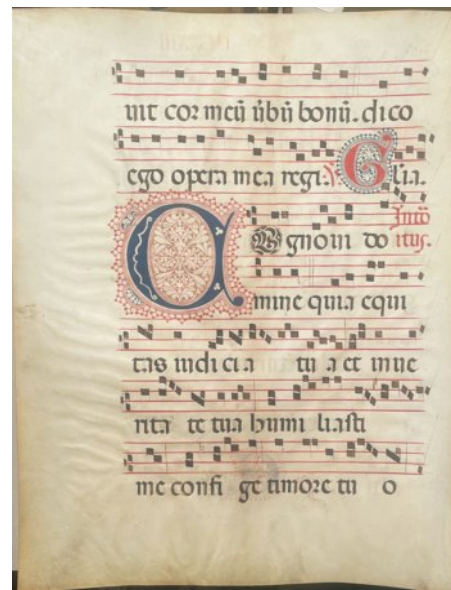 uit cor meū ūbū bonū. dico
ego opera mea regi. V Glia.
Intro
COgnoui do itus.
mine quia equi
tas iudicia tua et in ue
rita te tua humi liasti
me confi ge timore tu o